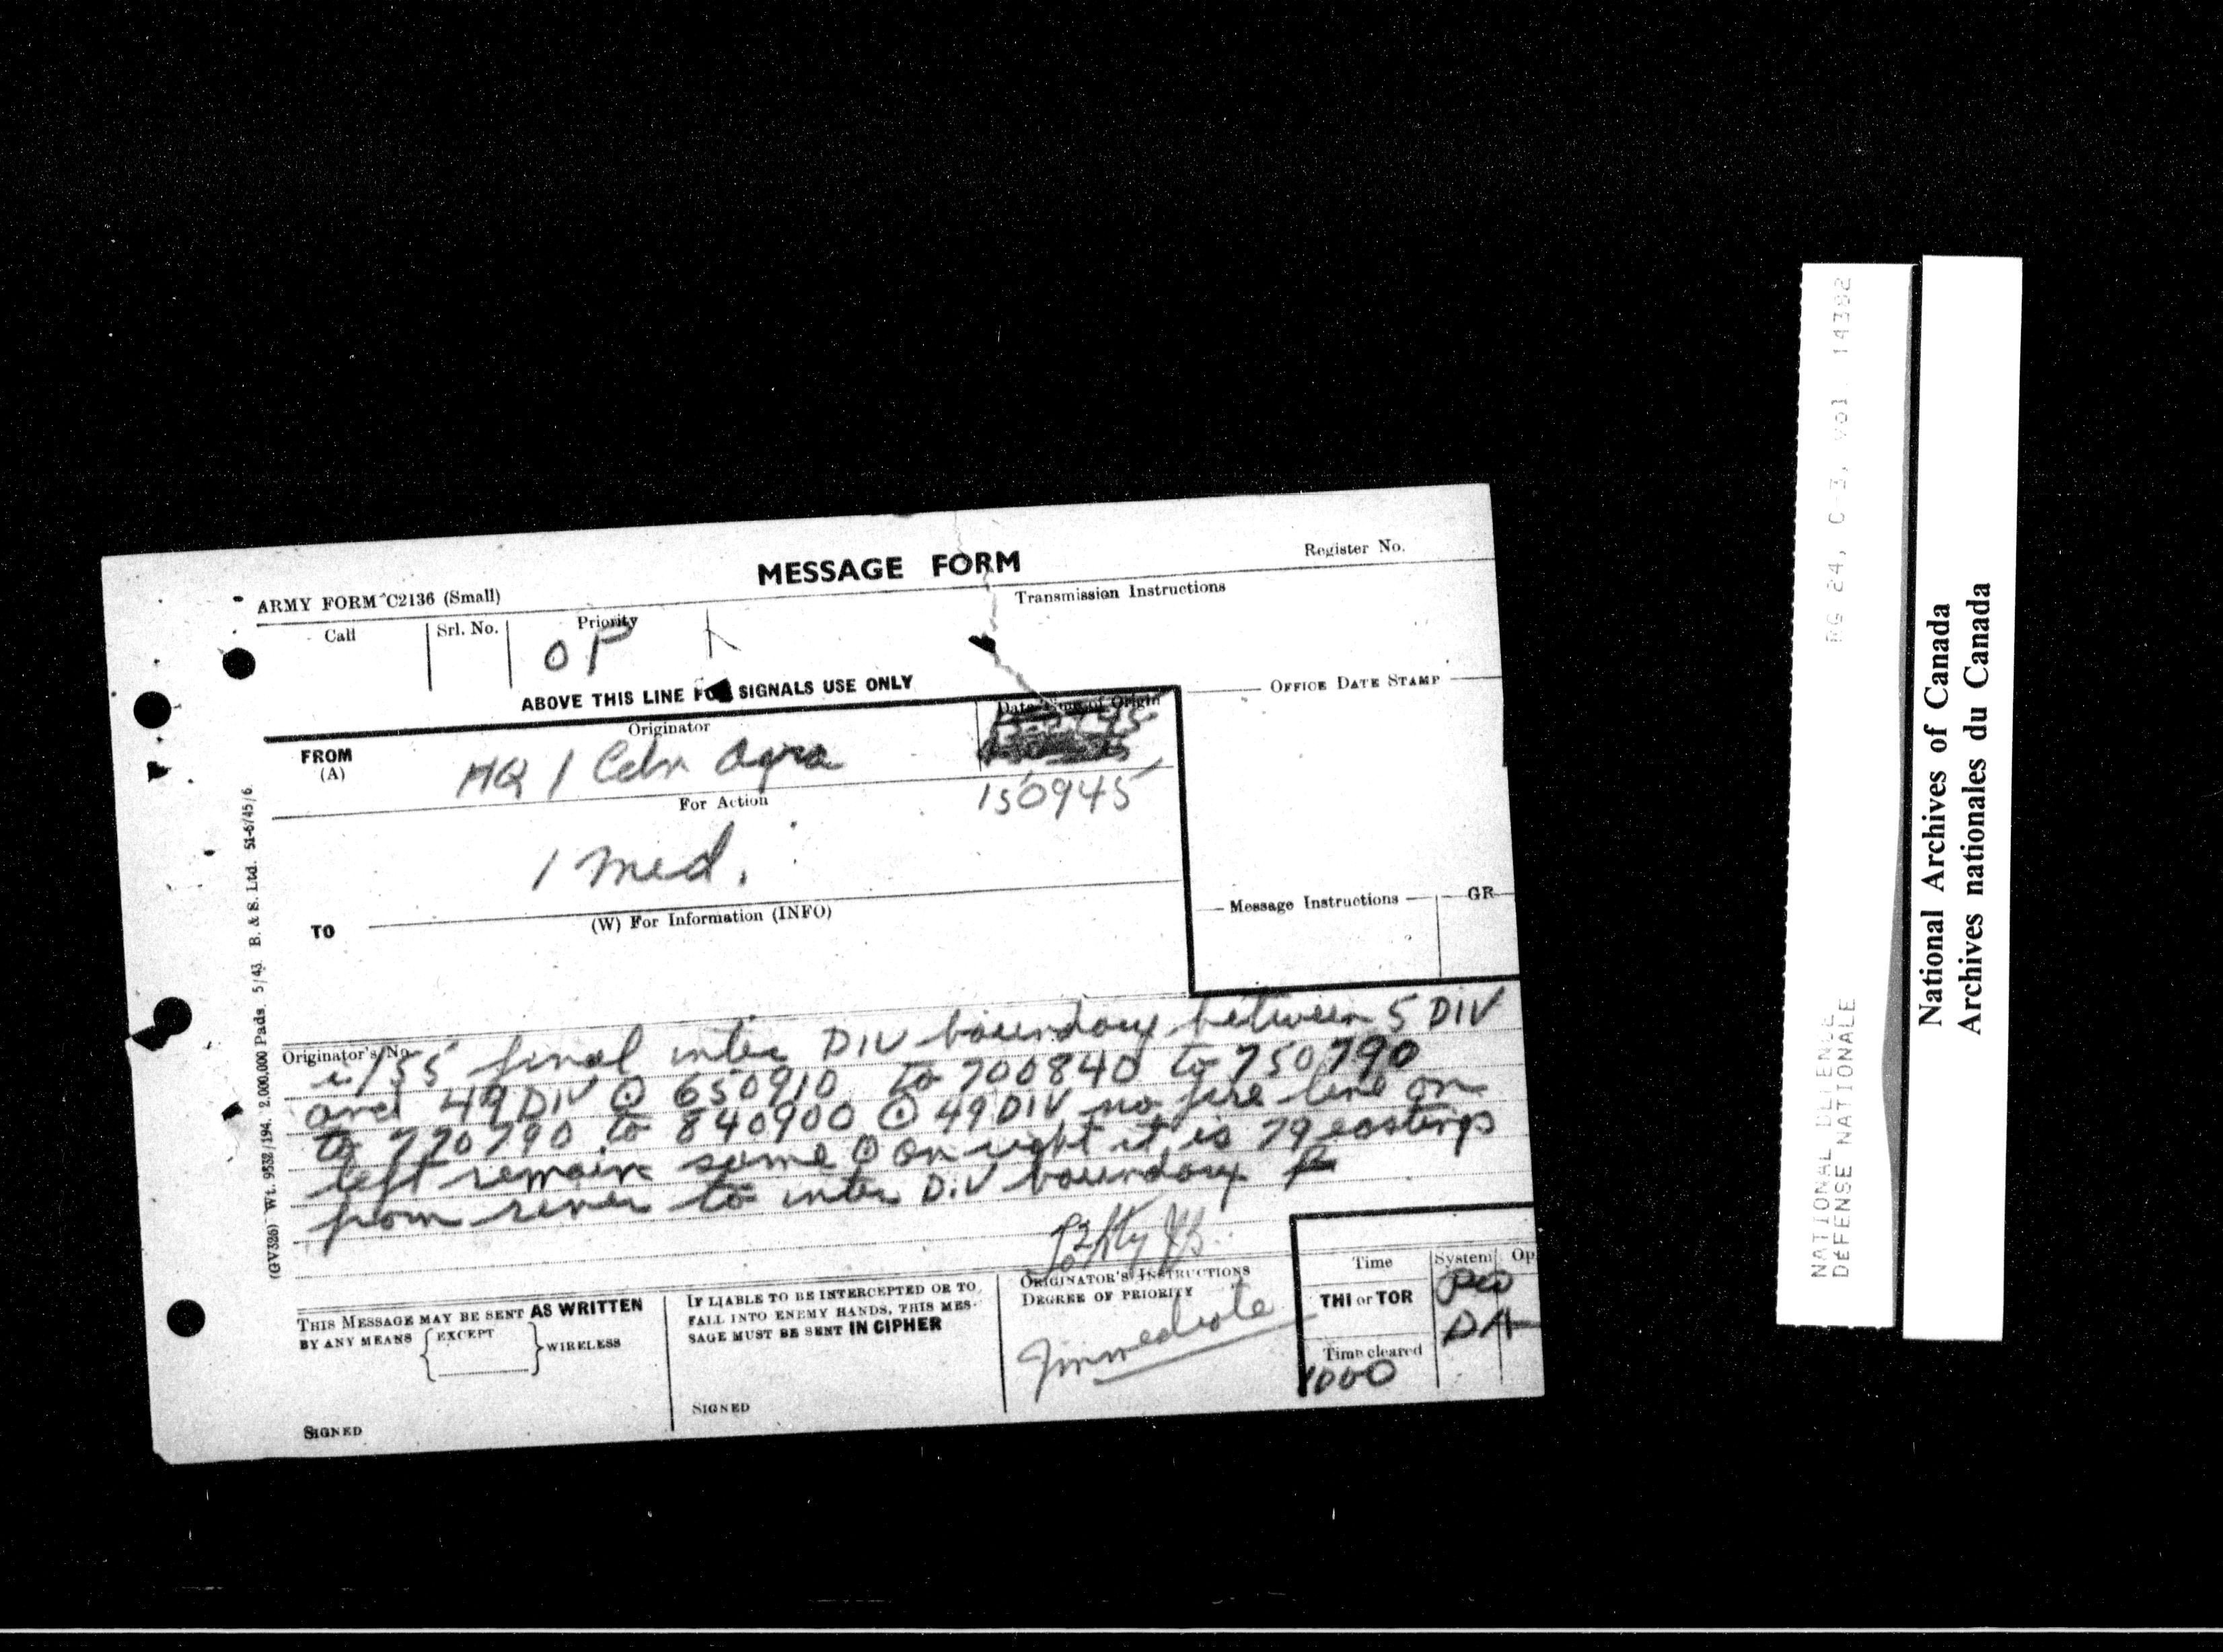 MESSAGE FORM
Register No.
ARMY FORM C2136 (Small)
Transmission Instructions
Call
Srl. No.
Priority
OP
ABOVE THIS LINE FOR SIGNALS USE ONLY
OFFICE DATE STAMP
FROM
(A)
Originator
Date-Time of Origin
HQ 1 Cdn Agra
150945
For Action
1 med.
TO
(W) For Information (INFO)
Message Instructions
GR
Originator's No.
/55 final inter DIV boundary between 5 DIV
and 49 DIV ⊙ 650910 to 700840 to 750790
to 770790 to 840900 ⊙ 49 DIV no fire line on
left remain same ⊙ on right it is 79 eastings
from river to inter DIV boundary
THIS MESSAGE MAY BE SENT AS WRITTEN
BY ANY MEANS { EXCEPT } WIRELESS
SIGNED
IF LIABLE TO BE INTERCEPTED OR TO
FALL INTO ENEMY HANDS, THIS MES-
SAGE MUST BE SENT IN CIPHER
SIGNED
ORIGINATOR'S INSTRUCTIONS
DEGREE OF PRIORITY
Immediate
Time
System
Op
THI or TOR
DA
Time cleared
1000
(GV326) Wt. 9532/194. 2,000,000 Pads. 5/43. B. & S. Ltd. 51-6/45/6.
RG 24, C 3, vol. 14382
NATIONAL DEFENCE
DEFENSE NATIONALE
National Archives of Canada
Archives nationales du Canada